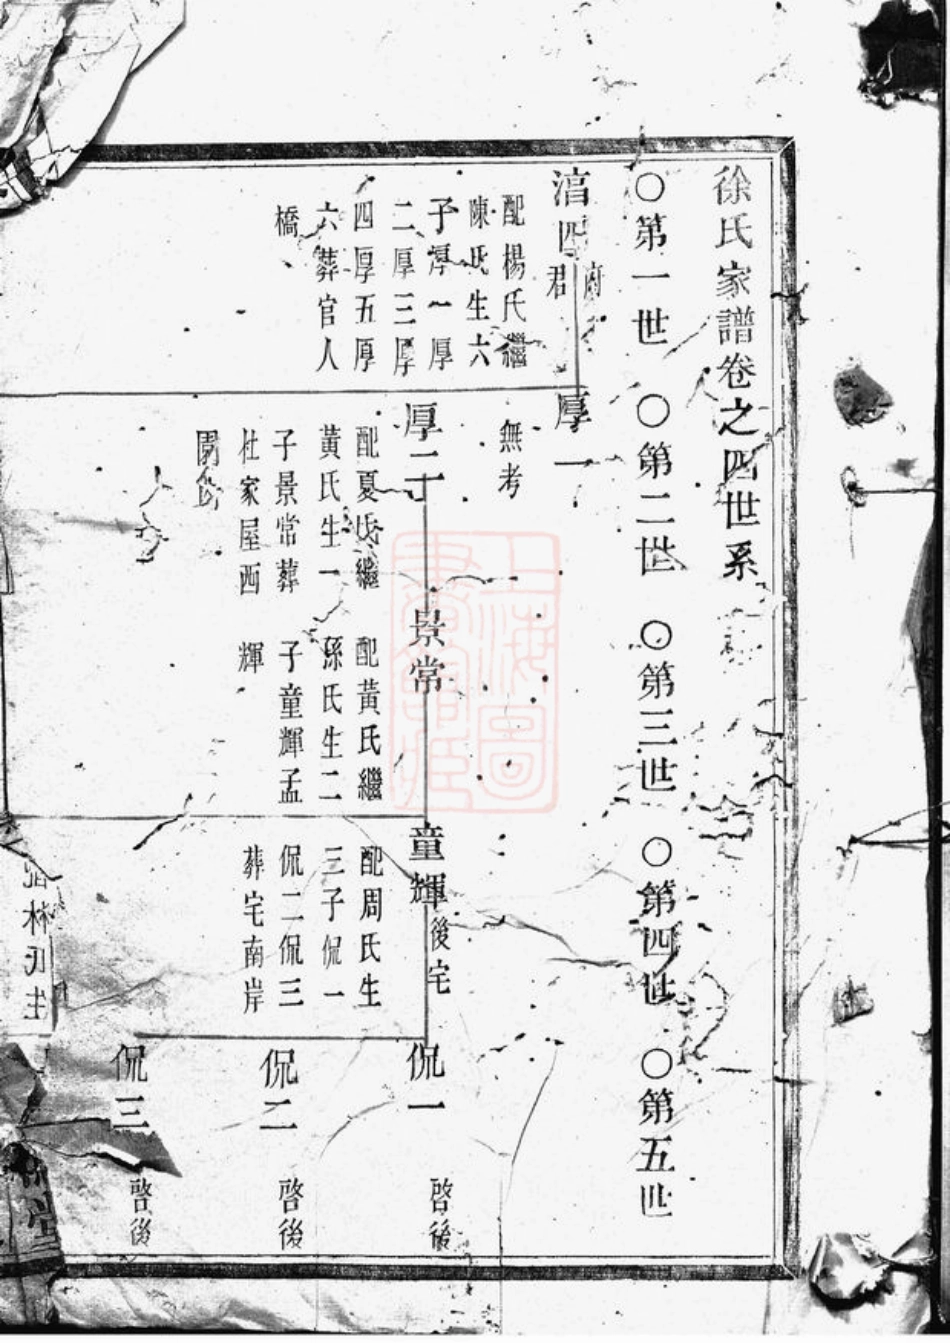 徐氏家譜卷之四世系
○第一世 ○第二世 ○第三世 ○第四世 ○第五世
四府君
配楊氏繼
陳氏生六
子厚一厚
二厚三厚
四厚五厚
六葬官人
橋
厚一
無考
厚二
配夏氏繼
黃氏生一
子景常葬
杜家屋西
園後
景常
配黃氏繼
孫氏生二
子童輝孟
輝
童輝後宅
配周氏生
三子侃一
侃二侃三
葬宅南岸
侃一 啓後
侃二 啓後
侃三 啓後
上海圖
林氏生